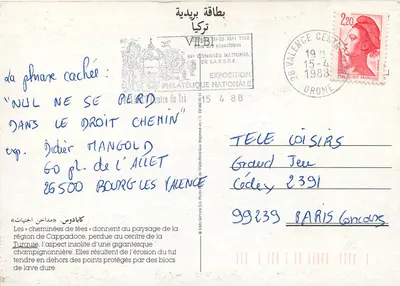 بطاقة بريدية
تركيا
EXPOSITION
PHILATELIQUE NATIONALE
15 4 88
26 VALENCE CENTRE
15-4
1988
DROME
2,20
la phrase cachée:
"NUL NE SE PERD
DANS LE DROIT CHEMIN"
exp. Didier MANGOLD
60 pl. de l'ALLET
26500 BOURG LES VALENCE
TELE LOISIRS
Grand Jeu
Cédex 2391
99239 PARIS Concours
كابادوس. «مداخن الجنيات»
Les «cheminées de fées» donnent au paysage de la
région de Cappadoce, perdue au centre de la
Turquie, l'aspect insolite d'une gigantesque
champignonnière. Elles résultent de l'érosion du tuf
tendre en dehors des points protégés par des blocs
de lave dure.